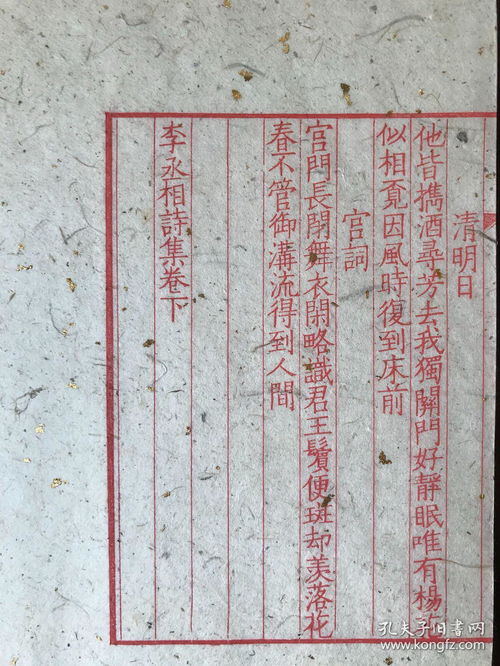 清明日
他皆擕酒尋芳去我獨關門好靜眠唯有楊花
似相覔因風時復到床前
宫詞
宫門長閉舞衣閑略識君王鬢便斑却羡落花
春不管御溝流得到人間
李丞相詩集卷下
孔夫子旧书网
www.kongfz.com